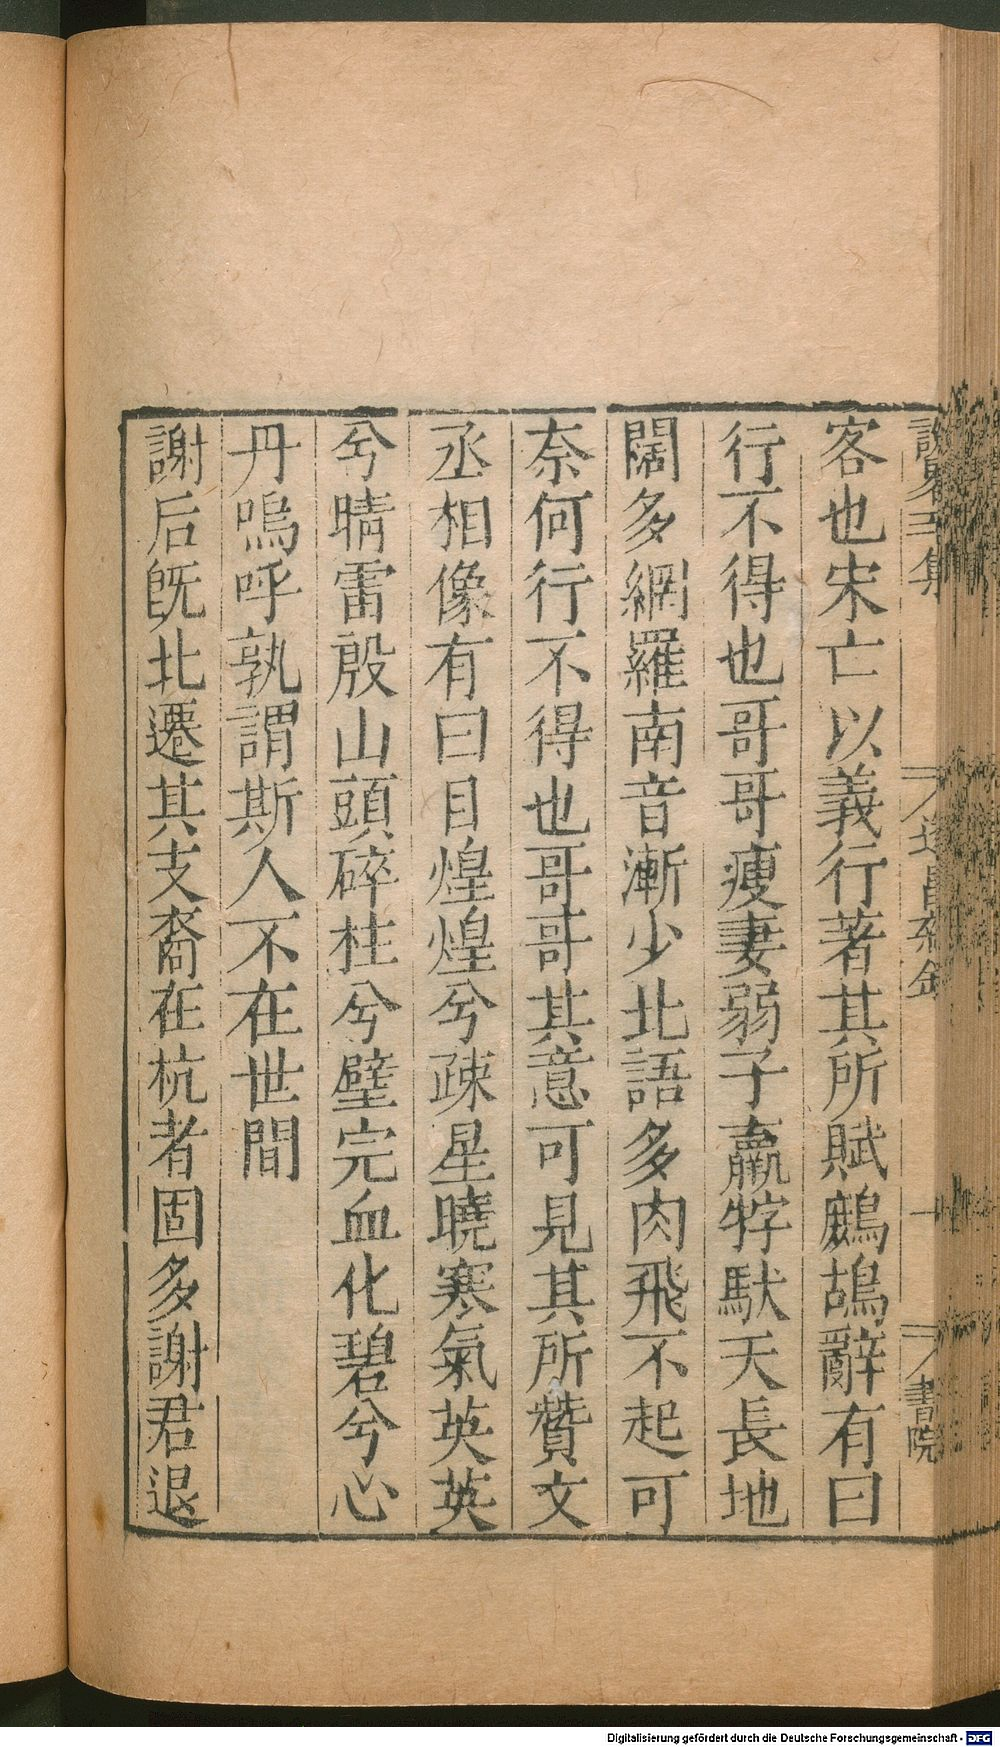 客也宋亡以義行著其所賦鷓鴣辭有曰
行不得也哥哥瘦妻弱子羸牸馱天長地
闊多網羅南音漸少北語多肉飛不起可
奈何行不得也哥哥其意可見其所贊文
丞相像有曰目煌煌兮疎星曉寒氣英英
兮晴雷殷山頭碎柱兮璧完血化碧兮心
丹嗚呼孰謂斯人不在世間
謝后旣北遷其支裔在杭者固多謝君退
書院
Digitalisierung gefördert durch die Deutsche Forschungsgemeinschaft - DFG